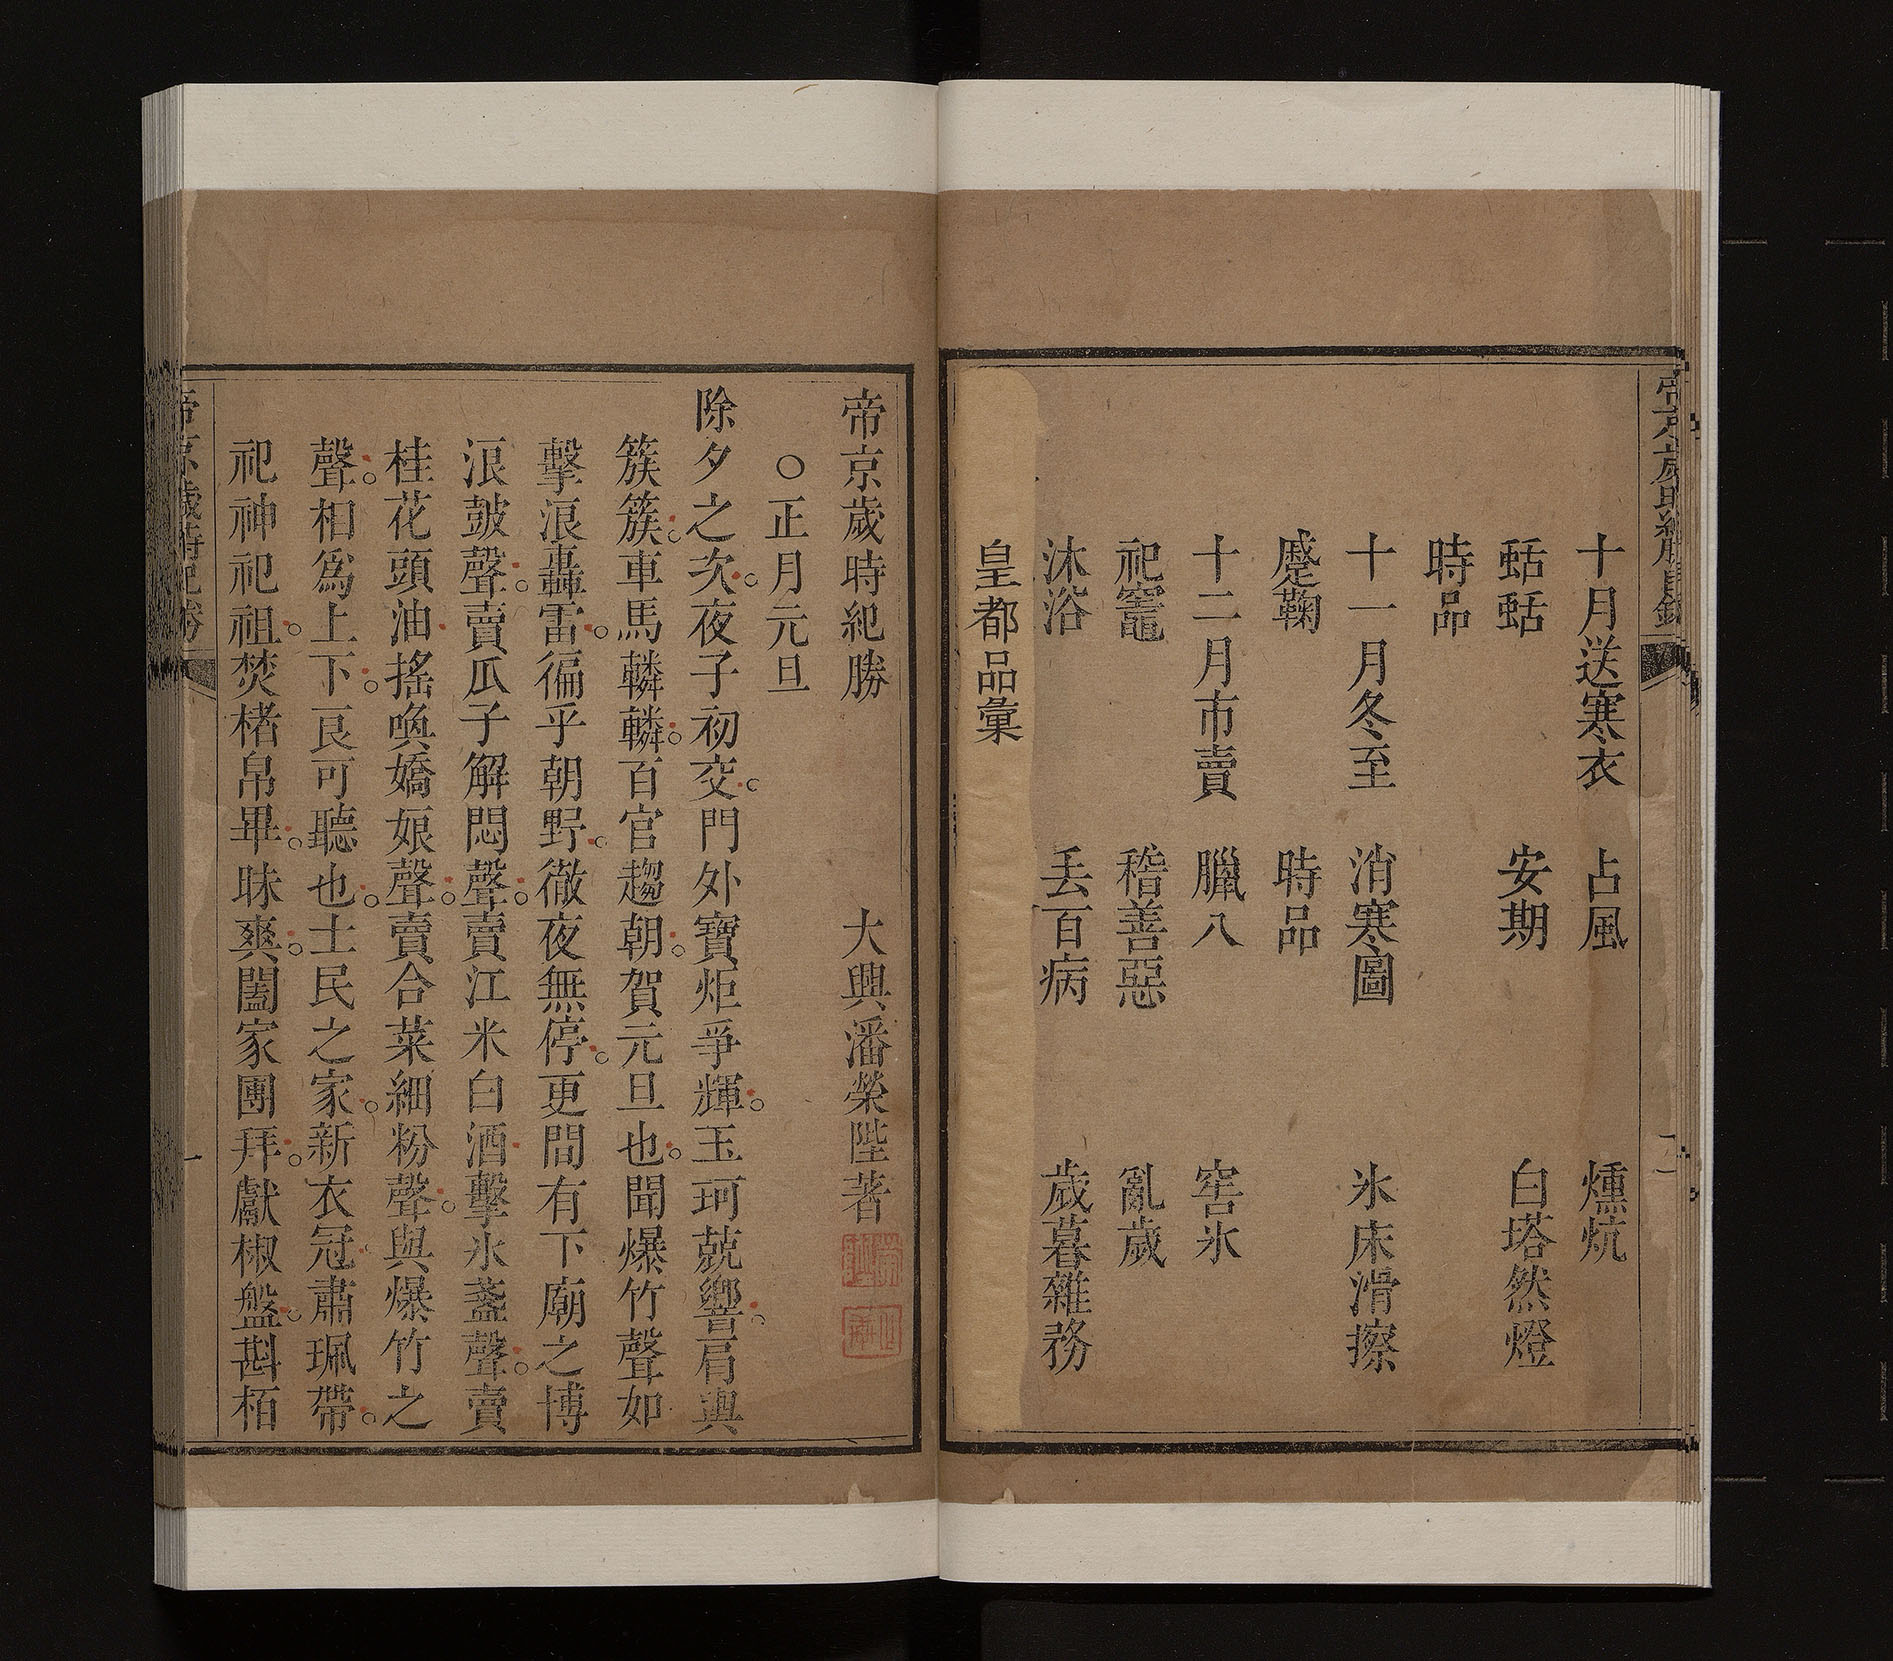 十月送寒衣　占風　燻炕
蛞蛞　安期　白塔然燈
時品
十一月冬至　消寒圖　氷床滑擦
蹙鞠　時品
十二月市賣　臘八　窖氷
祀竈　稽善惡　亂歲
沐浴　丢百病　歲暮雜務
皇都品彙
帝京歲時紀勝　大興潘榮陛著
○正月元旦
除夕之次。夜子初交。門外寶炬爭輝。玉珂兢響。肩輿
簇簇。車馬轔轔。百官趨朝。賀元旦也。聞爆竹聲如
擊浪轟雷。徧乎朝野。徹夜無停。更間有下廟之博
浪皷聲。賣瓜子解悶聲。賣江米白酒擊氷盞聲。賣
桂花頭油搖喚嬌娘聲。賣合菜細粉聲。與爆竹之
聲。相爲上下。良可聽也。士民之家。新衣冠肅珮帶。
祀神祀祖。焚楮帛畢。昧爽。闔家團拜。獻椒盤。斟栢
帝京歲時紀勝
一